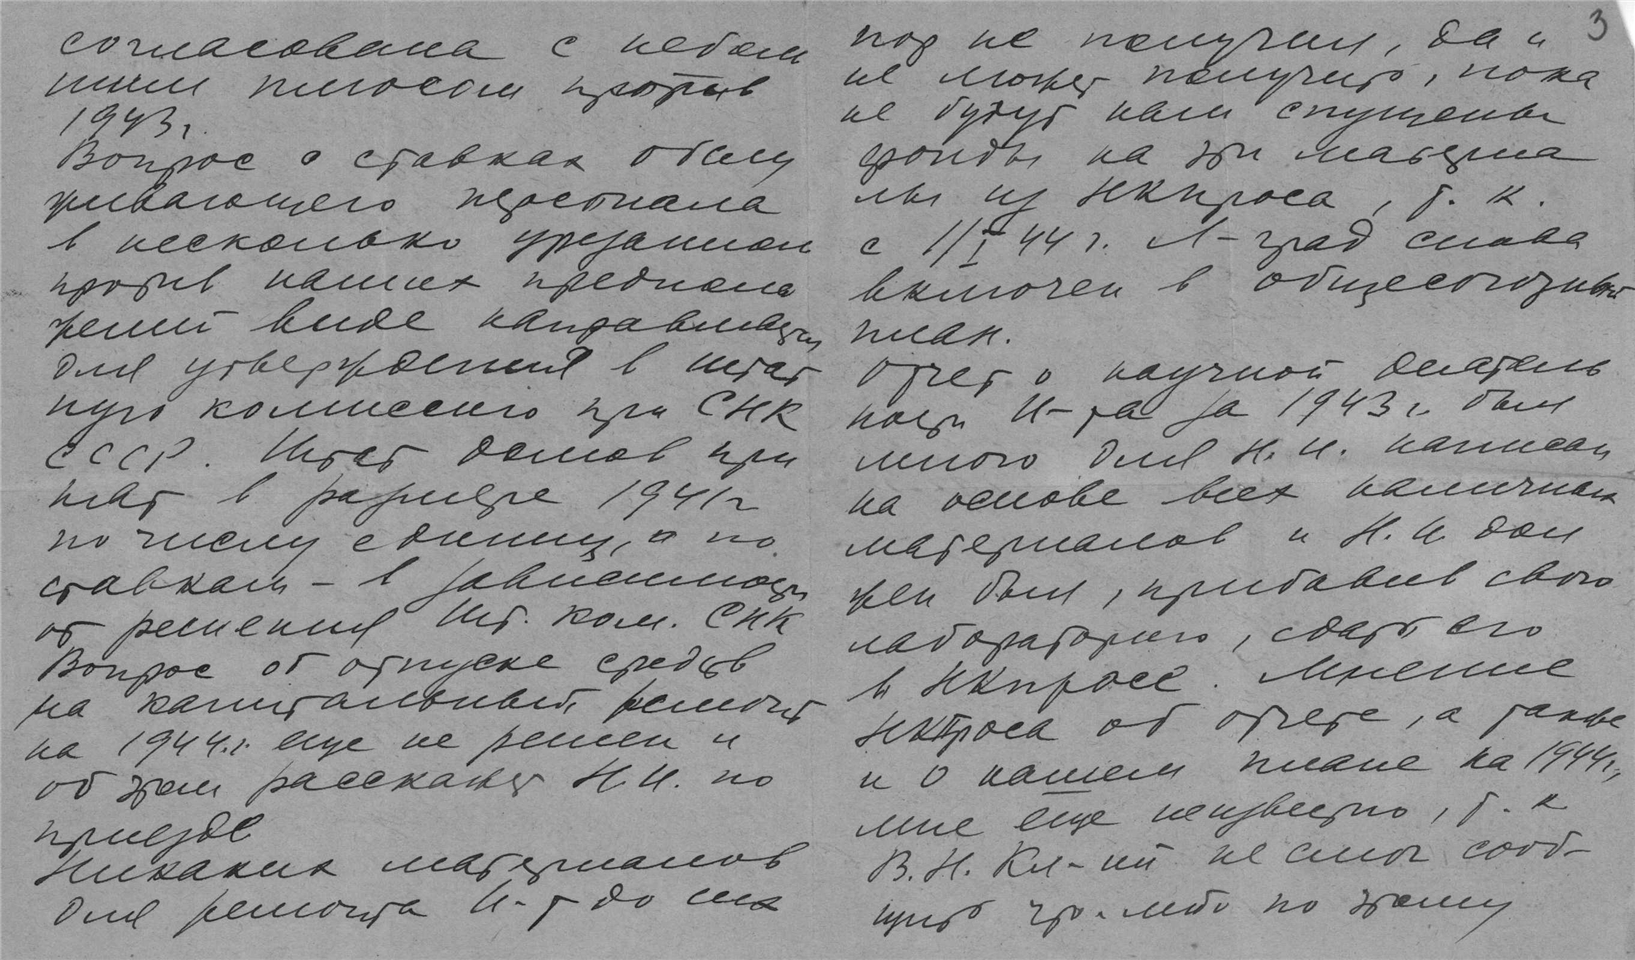 согласована с неболь
шим плюсом против
1943 г.
Вопрос о ставках обслу
живающего персонала
в несколько урезанном
против наших предполо
жений виде направляется
для утверждения в штат
ную комиссию при СНК
СССР. Штат домов при
нят в размере 1941 г
по числу единиц, а по
ставкам – в зависимости
от решения Шт. ком. СНК
Вопрос об отпуске средств
на капитальный ремонт
на 1944 г. еще не решен и
об этом расскажет Н.И. по
приезде
Никаких материалов
для ремонта И-т до сих
3
пор не получил, да и
не может получить, пока
не будут нам спущены
фонды на эти материа
лы из НКпроса, т. к.
с 1/I 44 г. Л-град снова
включен в общесоюзный
план.
Отчет о научной деятель
ности И-та за 1943 г. был
мною для Н.И. написан
на основе всех наличных
материалов и Н.И. дол
жен был, прибавив свою
лабораторию, сдать его
в НКпросе. Мнение
НКпроса об отчете, а также
и о нашем плане на 1944 г.,
мне еще неизвестно, т. к
В.Н. Кл-ий не смог сооб-
щить что-либо по этому